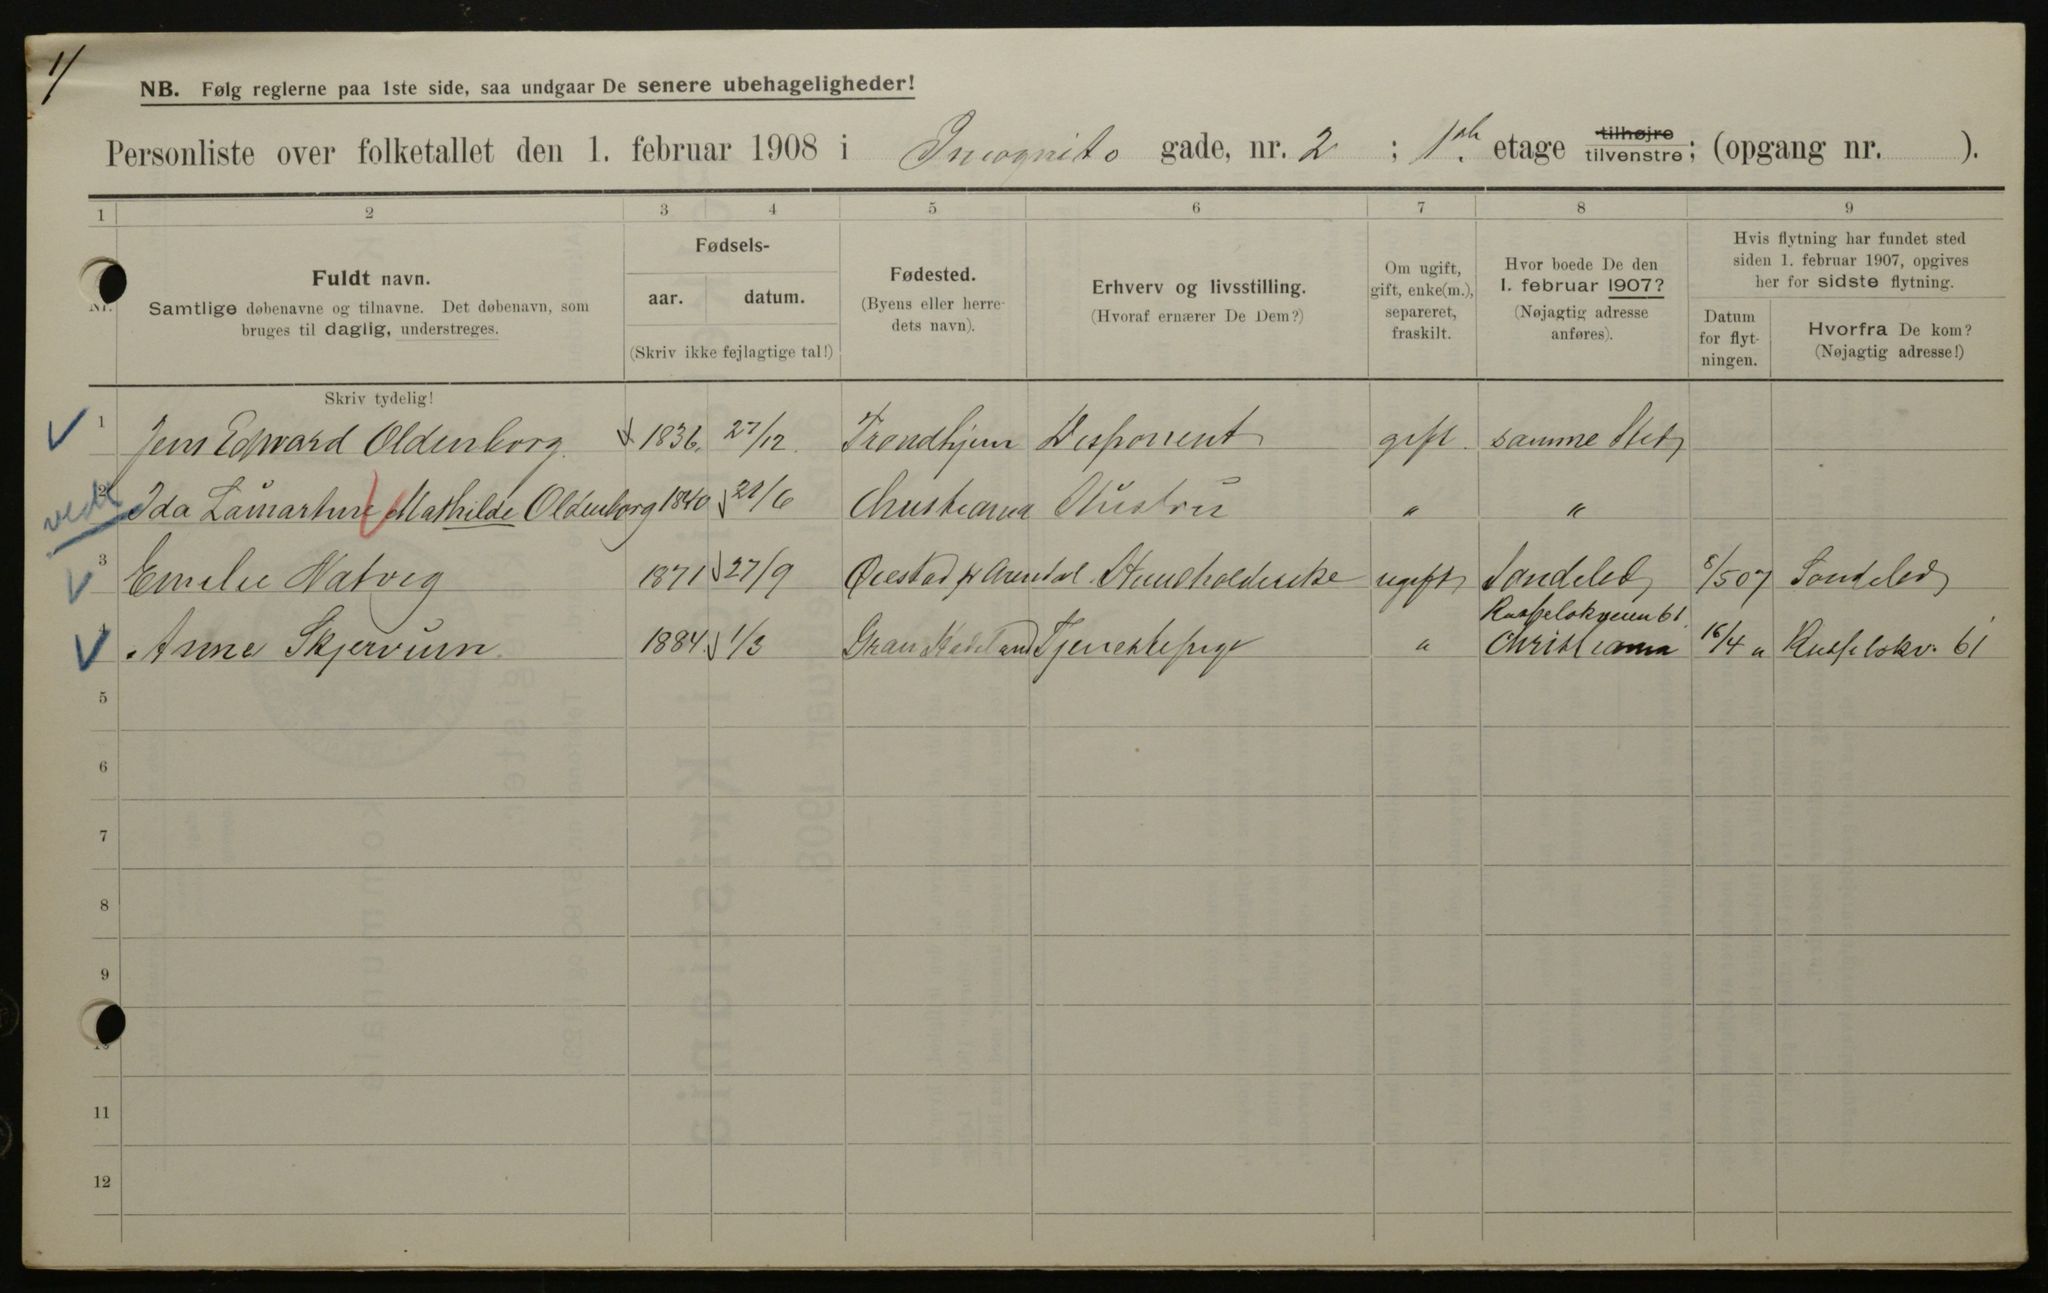 1/
NB. Følg reglerne paa 1ste side, saa undgaar De senere ubehageligheder!
Personliste over folketallet den 1. februar 1908 i Incognito gade, nr. 2 ; 1ste etage tilhøjre tilvenstre; (opgang nr. ).
1 2 3 4 5 6 7 8 9
Nr.
Fuldt navn.
Samtlige døbenavne og tilnavne. Det døbenavn, som
bruges til daglig, understreges.
Skriv tydelig!
Fødsels-
aar. datum.
(Skriv ikke fejlagtige tal!)
Fødested.
(Byens eller herre-
dets navn).
Erhverv og livsstilling.
(Hvoraf ernærer De Dem?)
Om ugift,
gift, enke(m.),
separeret,
fraskilt.
Hvor boede De den
1. februar 1907?
(Nøjagtig adresse
anføres).
Hvis flytning har fundet sted
siden 1. februar 1907, opgives
her for sidste flytning.
Datum
for flyt-
ningen.
Hvorfra De kom?
(Nøjagtig adresse!)
1 Jens Edward Oldenborg 1836 27/12 Trondhjem Disponent gift samme Sted
2 Ida Mathilde Oldenborg 1840 21/6 Christiania Hustru " "
3 Emilie Natvig 1871 27/9 Øiestad pr Arendal ugift Søndeled 8/5 07 Søndeled
4 Anne Skjervum 1884 1/3 Gran Hadeland Tjenestepige " Christiania 16/4 "  61
5
6
7
8
9
10
11
12